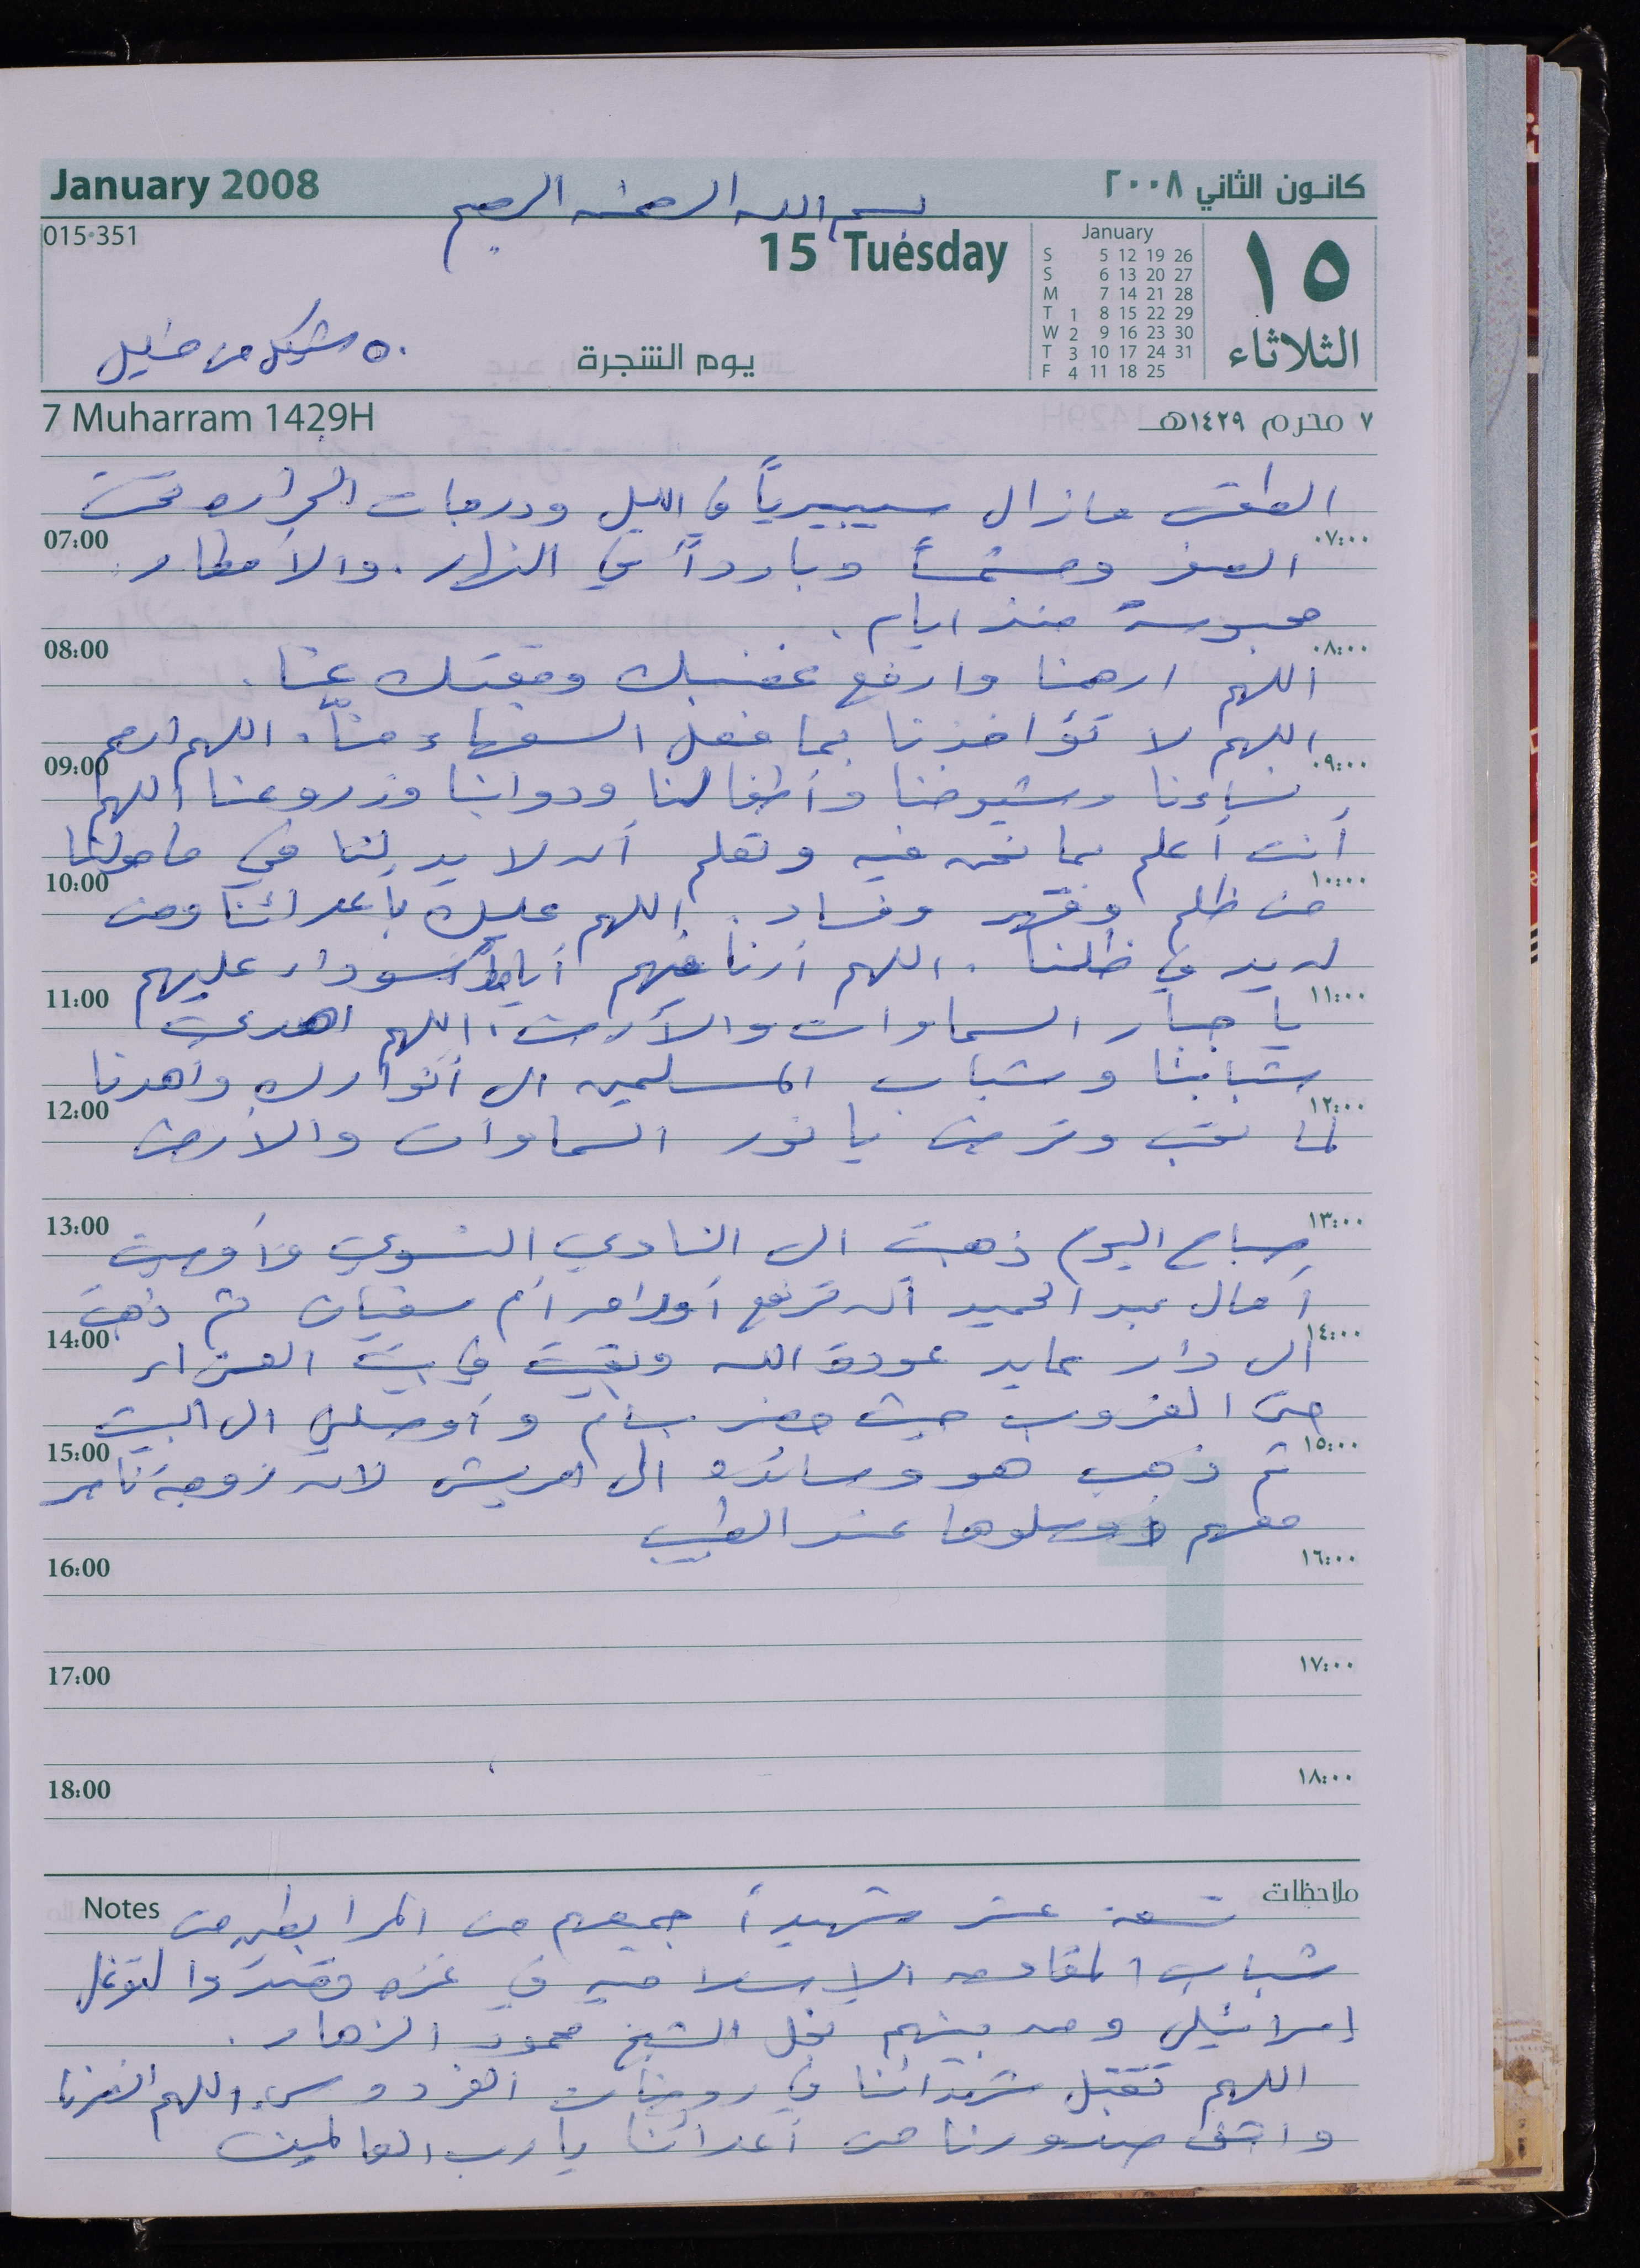 January 2008
كانون الثاني ٢٠٠٨
بسم الله الرحمن الرحيم
015-351
15 Tuesday
January
S 5 12 19 26
S 6 13 20 27
M 7 14 21 28
T 1 8 15 22 29
W 2 9 16 23 30
T 3 10 17 24 31
F 4 11 18 25
١٥
الثلاثاء
يوم الشجرة
٥٠ شيكل من
7 Muharram 1429H
٧ محرم ١٤٢٩هـ
الطقس مازال سيبيرياً في الليل ودرجات الحراره تحت
07:00 ٠٧:٠٠
الصفر ومشمساً وبارداً في النهار. والأمطار
محبوسة منذ ايام.
08:00 ٠٨:٠٠
اللهم ارحمنا وارفع غضبك ومقتك عنا.
اللهم لا تؤاخذنا بما فعل السفهاء منا. اللهم ارحم
09:00 ٠٩:٠٠
نساءنا وشيوخنا وأطفالنا ودوابنا وزروعنا اللهم
أنت أعلم بما نحن فيه وتعلم أن لا يد لنا في ما حولنا
10:00 ١٠:٠٠
من ظلم وقهر وفساد. اللهم عليك بأعدائنا ومن
له يد في ظلمنا. اللهم أرنا فيهم أياماً سوداء عليهم
11:00 ١١:٠٠
يا جبار السماوات والأرض. اللهم اهدي
شبابنا وشباب المسلمين الى أنوارك وأهدنا
12:00 ١٢:٠٠
لما تحب وترضى يا نور السماوات والأرض
13:00 ١٣:٠٠
صباح اليوم ذهبت الى النادي النسوي وأوصيت
أمال عبد الحميد أن ترفع أوراق أم سفيان ثم ذهبت
14:00 ١٤:٠٠
الى دار عايد عودة الله وبقيت في بيت العزاء
حتى الغروب حيث حضر بسام وأوصلني الى البيت
15:00 ١٥:٠٠
ثم ذهب هو وسائد الى لأن زوجة تامر
معهم وأوصلوها عند الطبيب
16:00 ١٦:٠٠
17:00 ١٧:٠٠
18:00 ١٨:٠٠
1
Notes ملاحظات
تسعة عشر شهيداً جميعهم من المرابطين من
شباب المقاومه الإسلاميه في غزه تصدوا لتوغل
إسرائيلي ومن بينهم نجل الشيخ محمود الزهار.
اللهم تقبل شهدائنا في روضات الفردوس. اللهم انصرنا
واشف صدورنا من أعدائنا يا رب العالمين